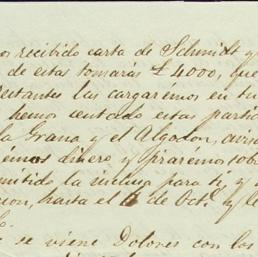 os recibido carta de Schmidt y
de estas tomarás £4000, que
estantes las cargarémos en tu
hemos sentado estas partid
la Grana y el Algodon, avis
émos dinero y giraremos sobr
mitido la inclusa para ti, y
cion, hasta el de Oct. y le
se viene Dolores con los